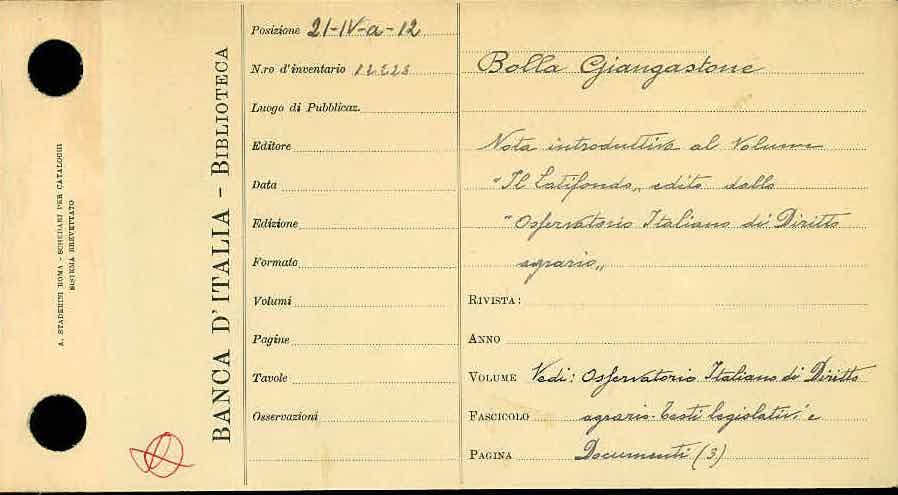 A. STADERINI ROMA - SCHEDARI PER CATALOGHI
SISTEMA BREVETTATO
BANCA D'ITALIA - BIBLIOTECA
Posizione 21-IV-a-12
N.ro d'inventario
Luogo di Pubblicaz.
Editore
Data
Edizione
Formato
Volumi
Pagine
Tavole
Osservazioni
Bolla Giangastone
Nota introduttiva al Volume
"Il Latifondo„ edito dallo
"Osservatorio Italiano di Diritto
agrario„
RIVISTA:
ANNO
VOLUME Vedi: Osservatorio Italiano di Diritto
FASCICOLO agrario - Testi legislativi e
PAGINA Documenti (3)